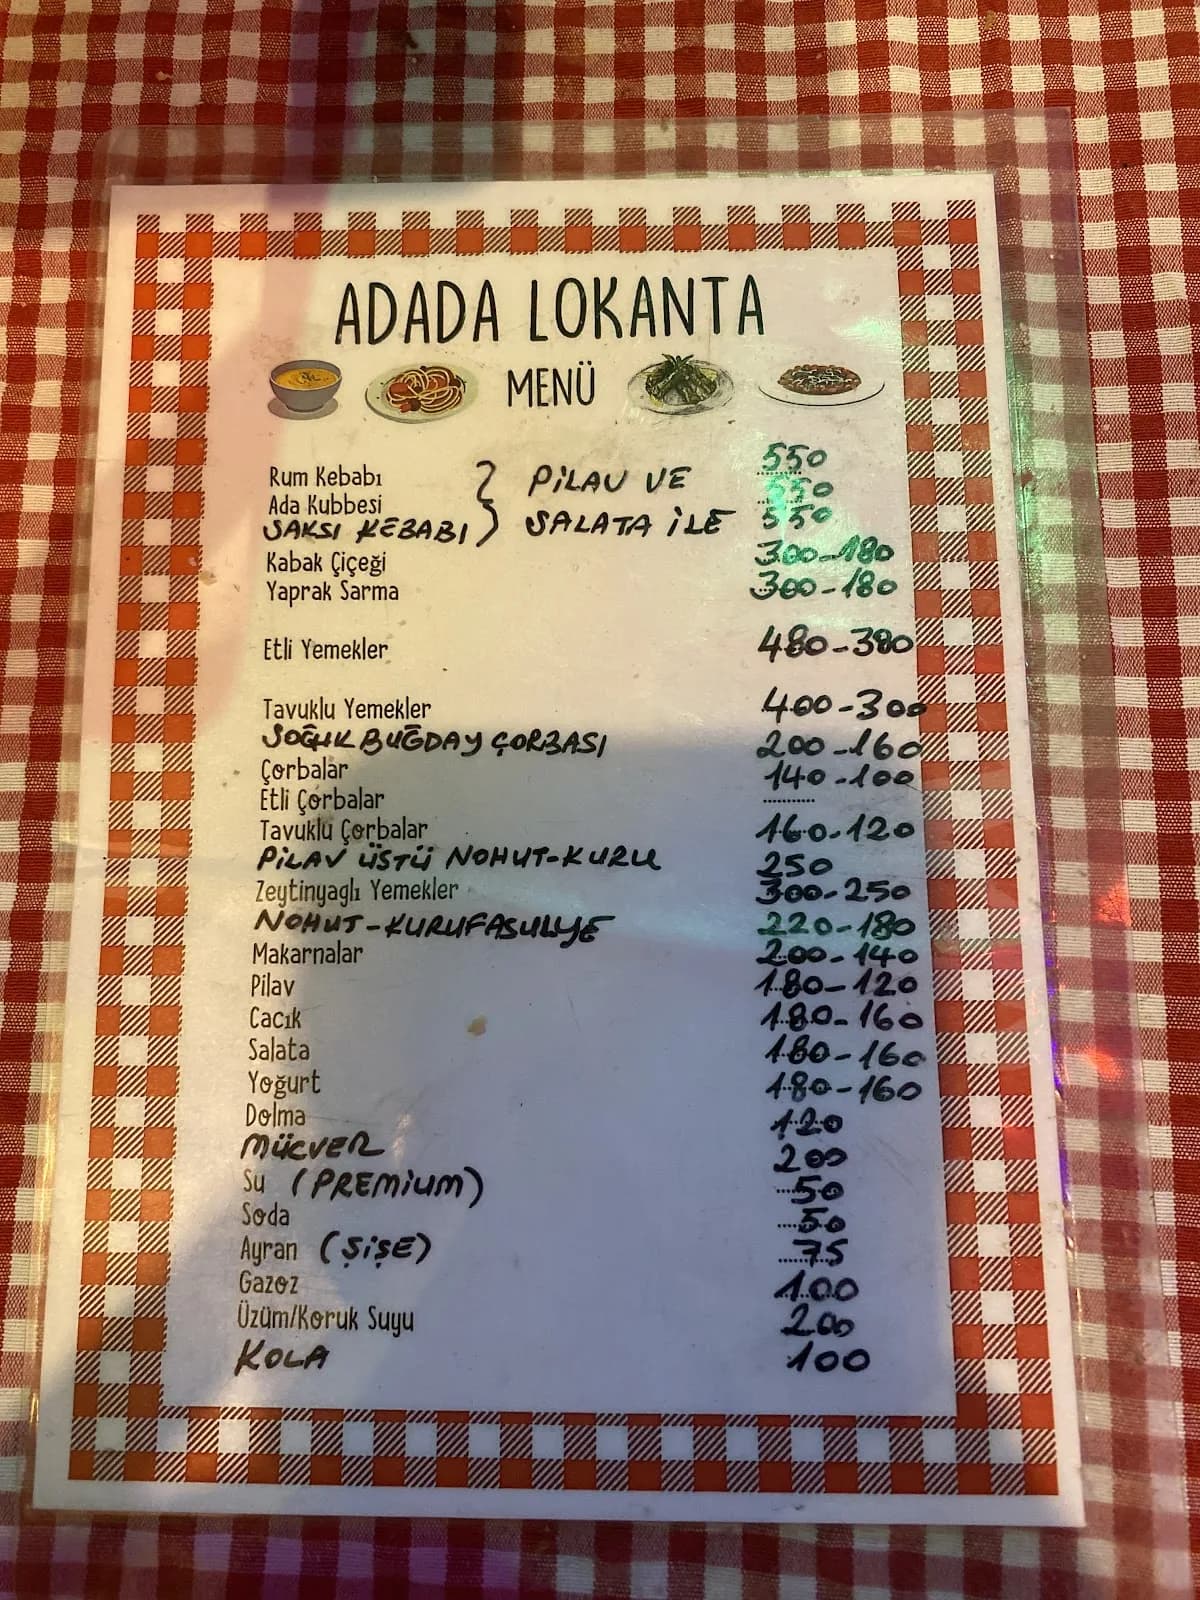 ADADA LOKANTA
MENÜ
Rum Kebabı } PİLAV VE 550
Ada Kubbesi 550
SAKSI KEBABI } SALATA İLE 550
Kabak Çiçeği 300-180
Yaprak Sarma 300-180
Etli Yemekler 480-380
Tavuklu Yemekler 400-300
SOĞUK BUĞDAY ÇORBASI 200-160
Çorbalar 140-100
Etli Çorbalar ..........
Tavuklu Çorbalar 160-120
PİLAV ÜSTÜ NOHUT-KURU 250
Zeytinyaglı Yemekler 300-250
NOHUT-KURUFASULYE 220-180
Makarnalar 200-140
Pilav 180-120
Cacık 180-160
Salata 180-160
Yoğurt 180-160
Dolma 120
MÜCVER 200
Su (PREMiUM) 50
Soda 50
Ayran (ŞİŞE) 75
Gazoz 100
Üzüm/Koruk Suyu 200
KOLA 100